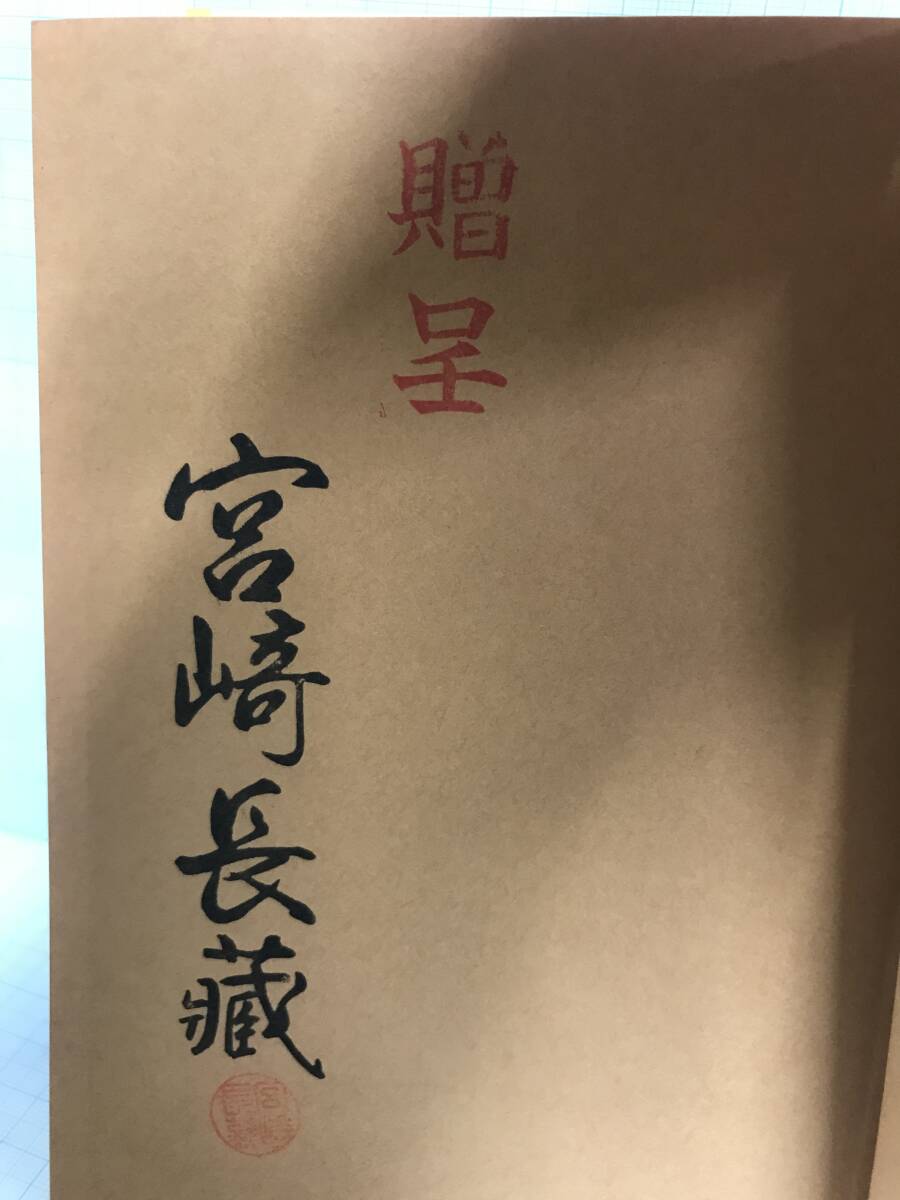 贈呈
宮崎長藏